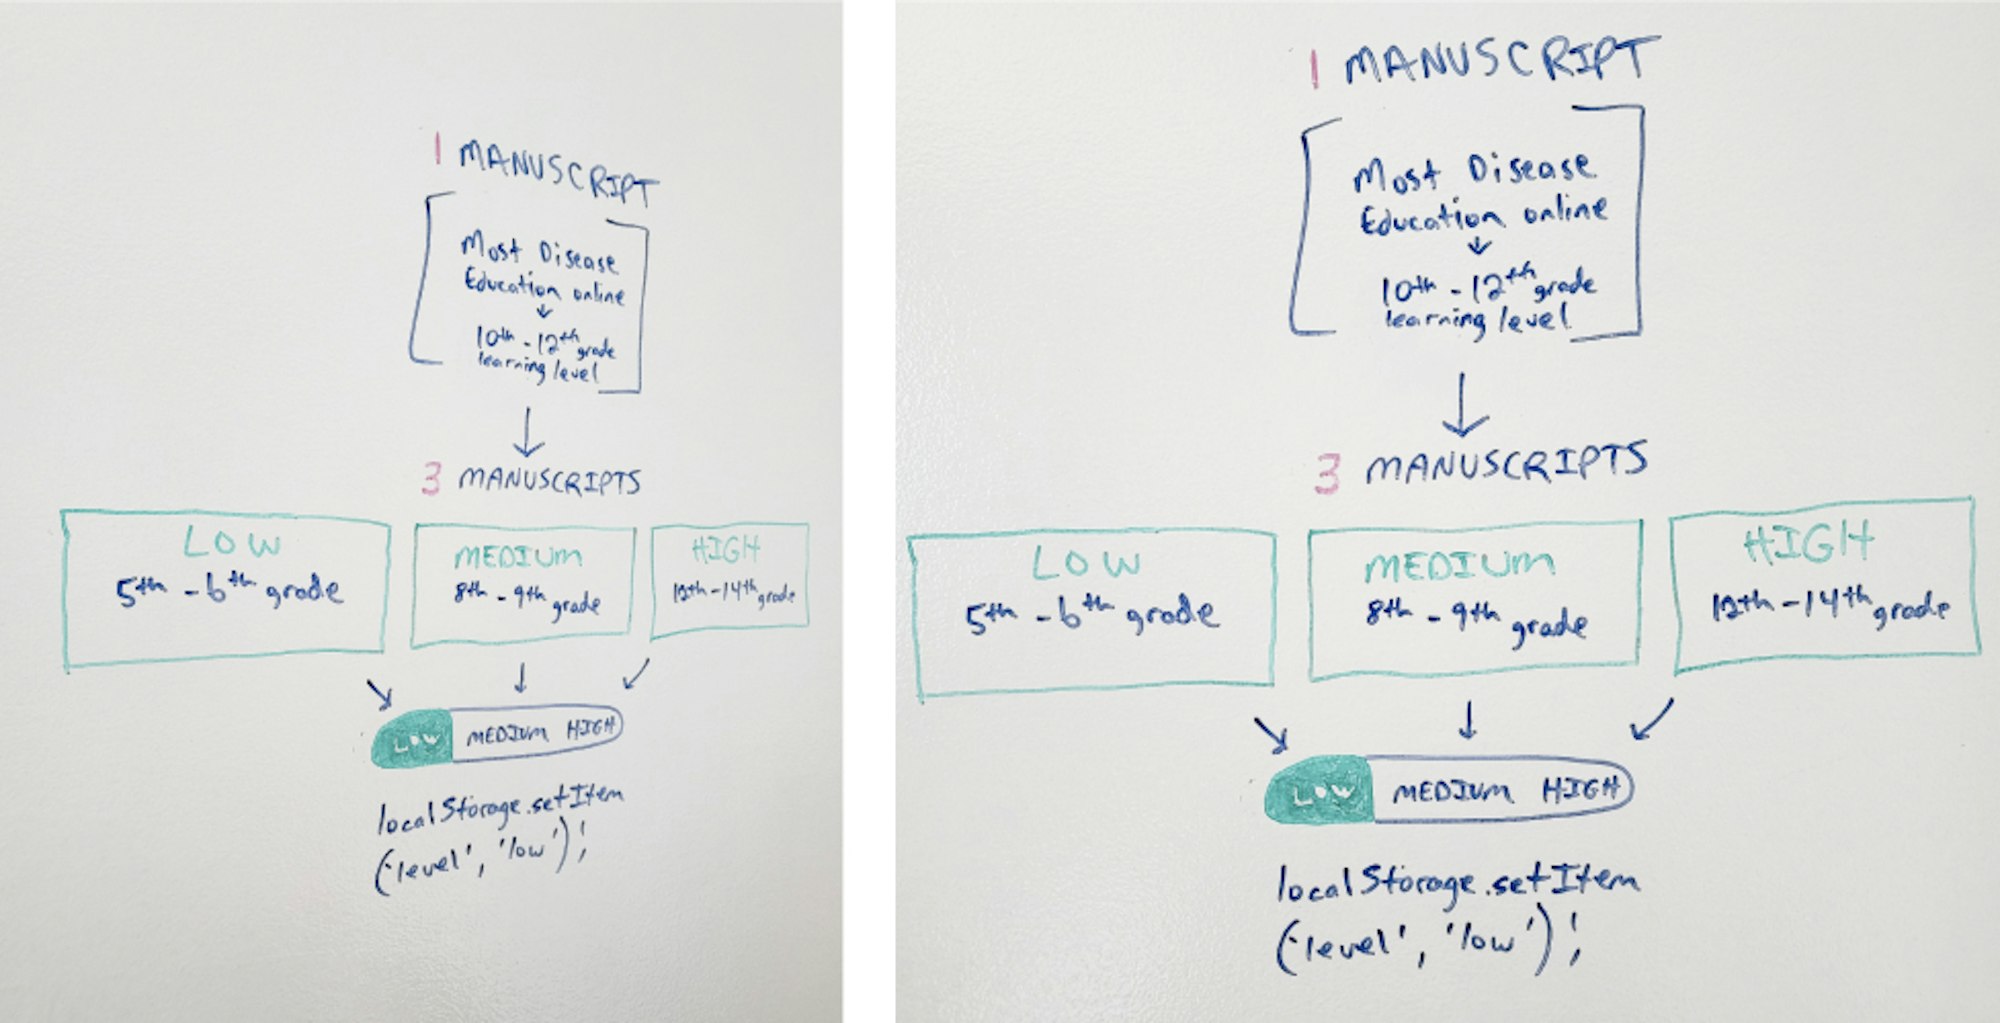 1 MANUSCRIPT
Most Disease
Education online
↓
10th - 12th grade
learning level
↓
3 MANUSCRIPTS
LOW
5th - 6th grade
MEDIUM
8th - 9th grade
HIGH
12th - 14th grade
LOW MEDIUM HIGH
localStorage.setItem
('level', 'low');
1 MANUSCRIPT
Most Disease
Education online
↓
10th - 12th grade
learning level
↓
3 MANUSCRIPTS
LOW
5th - 6th grade
MEDIUM
8th - 9th grade
HIGH
12th - 14th grade
LOW MEDIUM HIGH
localStorage.setItem
('level', 'low');